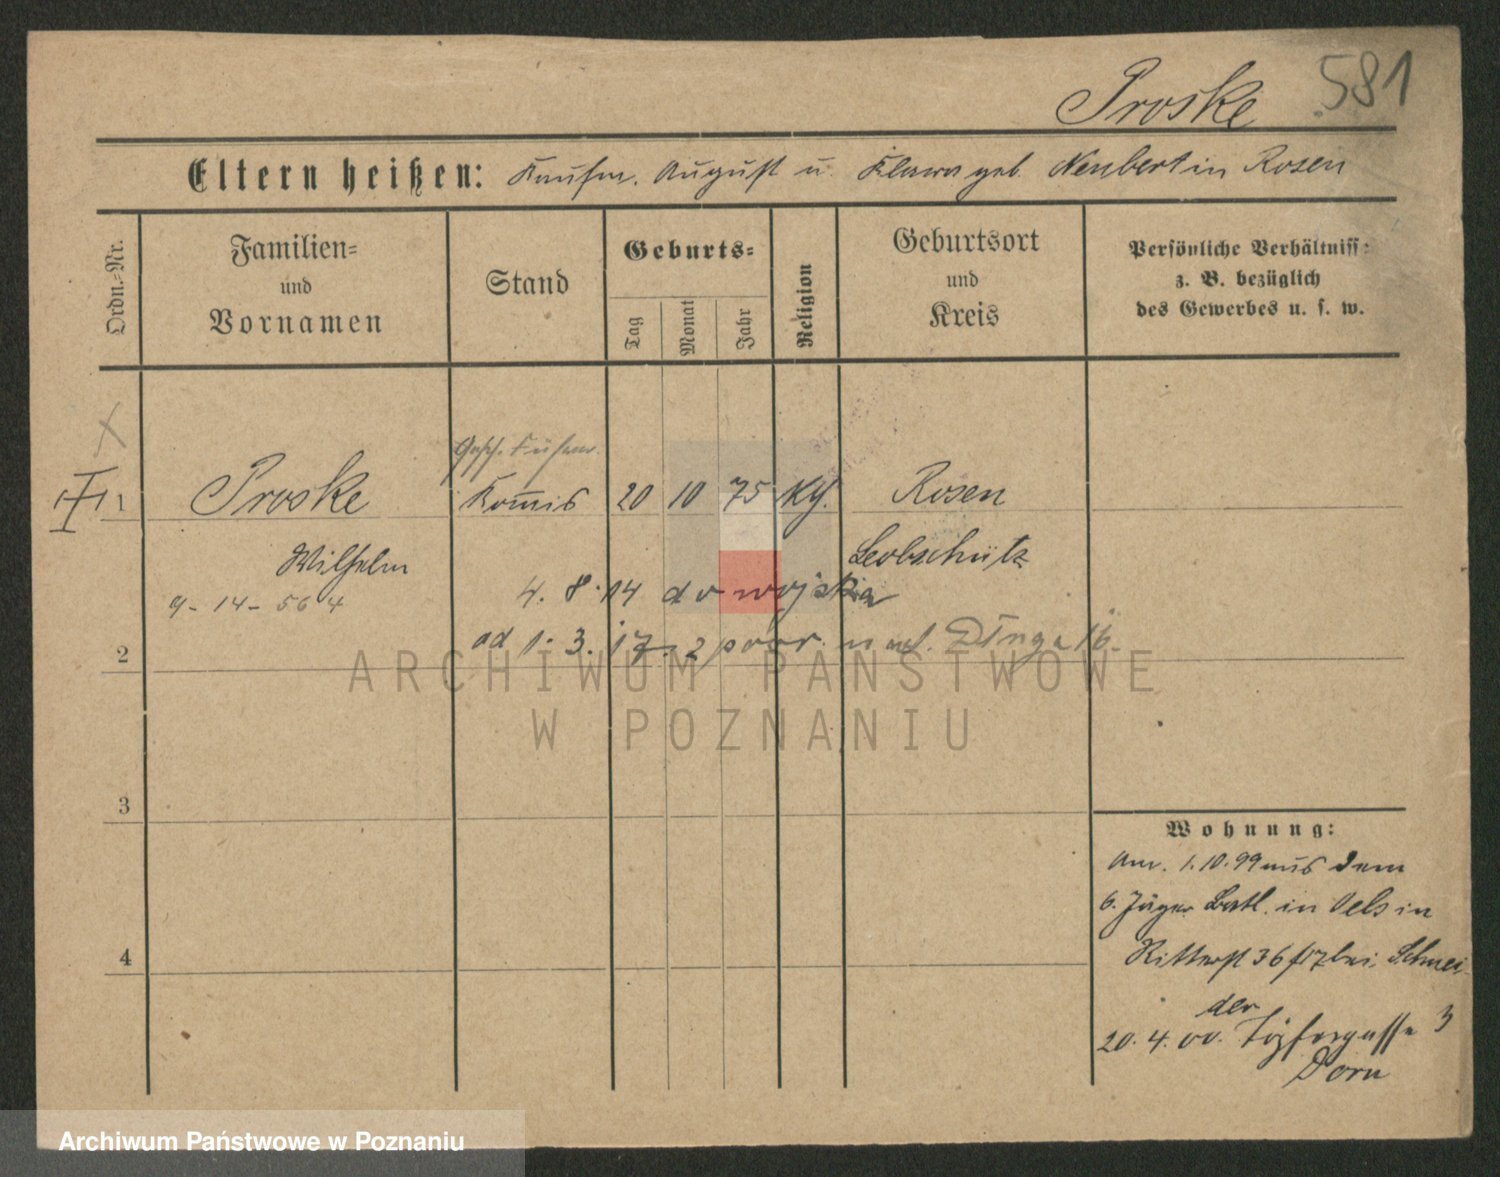 Proske 581
Eltern heißen: Kaufm. August u. Klara geb. Neubert in Rosen
Ordn.-Nr.
Familien-
und
Vornamen
Stand
Geburts-
Tag
Monat
Jahr
Religion
Geburtsort
und
Kreis
Persönliche Verhältniss-
z. B. bezüglich
des Gewerbes u. s. w.
Gesch. Führer
1 Proske Komis 20 10 75 Kth. Rosen
Wilhelm Leobschütz
9-14-564
4. 8. 14 do wojska
od 1. 3. 17.
2
ARCHIWUM PAŃSTWOWE
W POZNANIU
3
4
Wohnung:
Am. 1.10.99 aus dem
6. Jäger Batl. in Oels in
Ritterst 36 bei Schnei-
der
20. 4. 00. Töpfergasse 3
Dorn
Archiwum Państwowe w Poznaniu